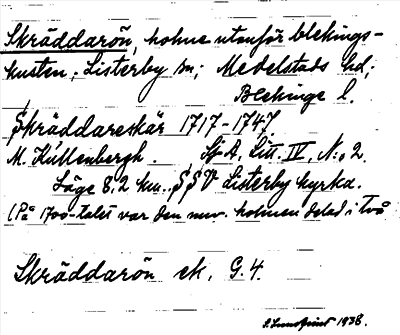 Skräddarön, holme utanför blekings-
kusten, Listerby sn; Medelstads hd;
Blekinge l.
Skräddareskär 1717-1747
M. Kullenbergh. StA, Litt. IV, N:o 2.
Läge 8,2 km. SSV Listerby kyrka.
(På 1700-talet var den nuv. holmen delad i två
Skräddarön ek. G.4.
S. Lundqvist 1938.